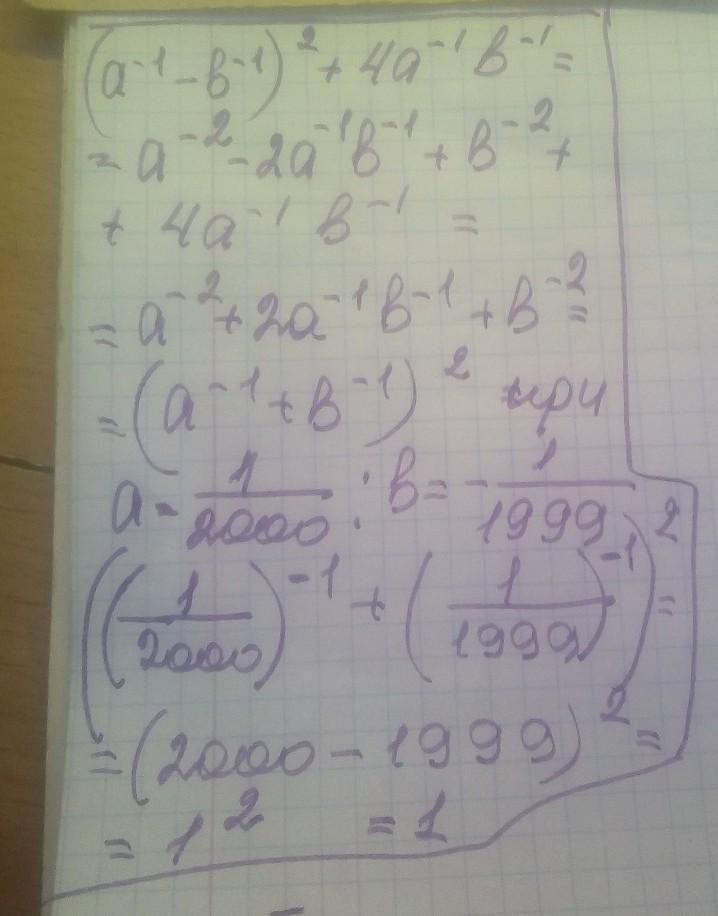 (a⁻¹ - b⁻¹)² + 4a⁻¹ b⁻¹ =
= a⁻² - 2a⁻¹b⁻¹ + b⁻² +
+ 4a⁻¹ b⁻¹ =
= a⁻² + 2a⁻¹b⁻¹ + b⁻² =
= (a⁻¹ + b⁻¹)² при
a = 1/2000 ; b = - 1/1999
((1/2000)⁻¹ + (1/1999)⁻¹)² =
= (2000 - 1999)² =
= 1² = 1